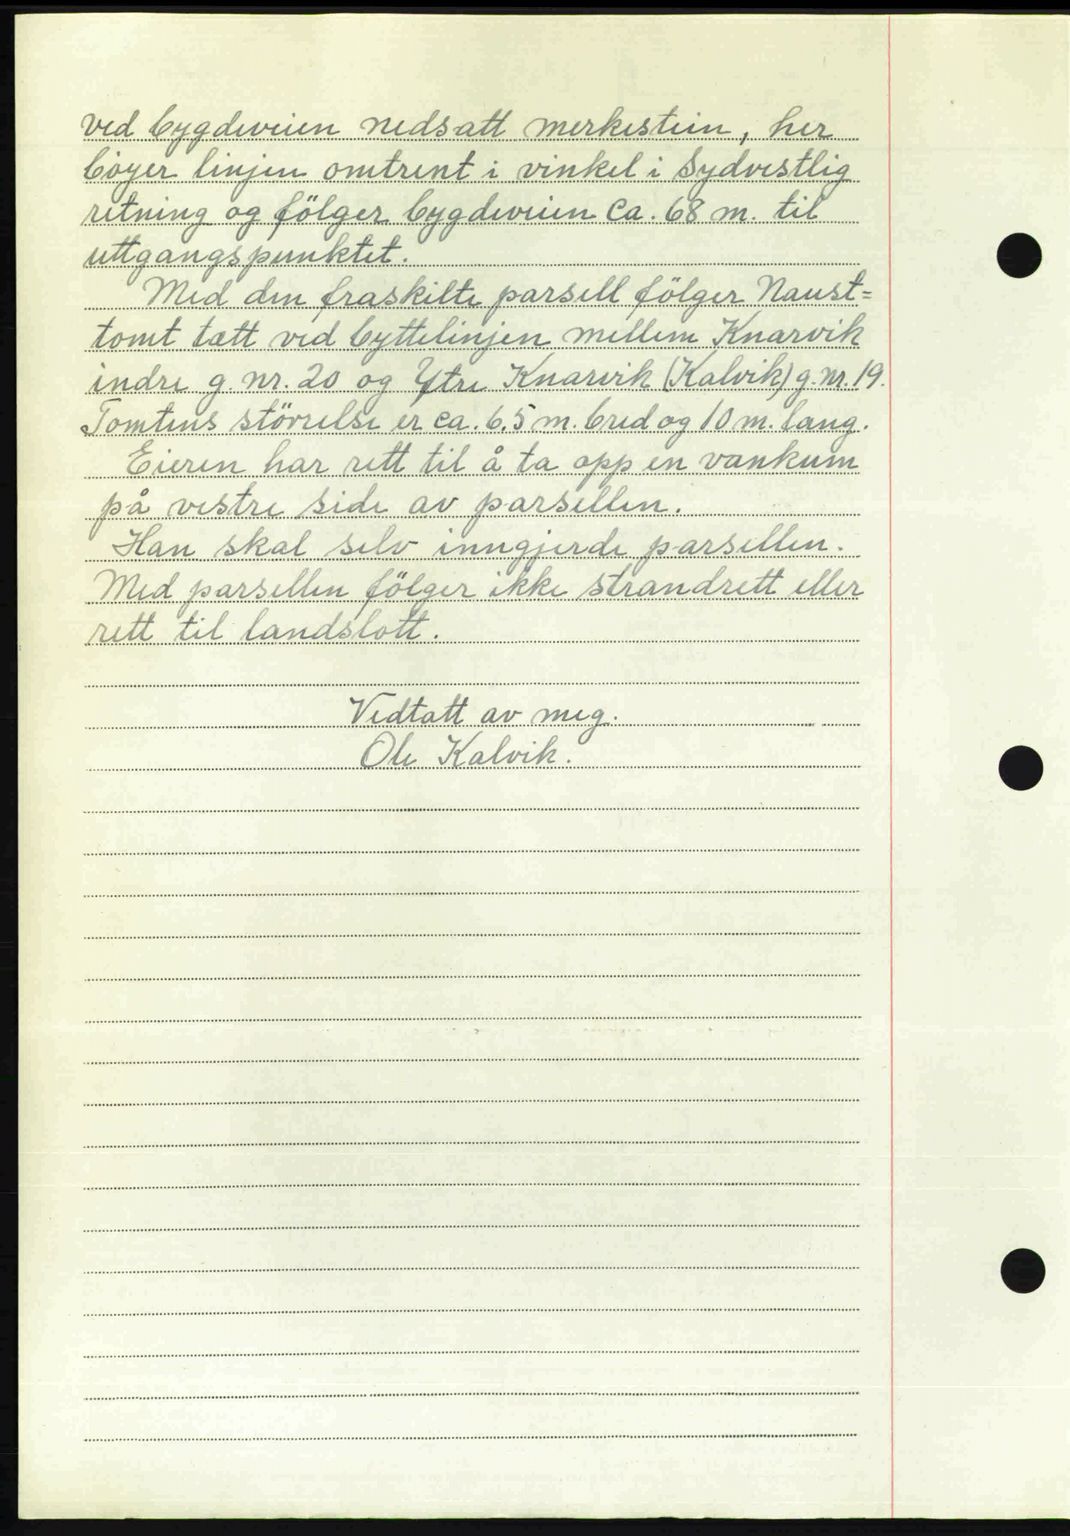 ved bygdeveien nedsatt merkestein, her
böyer linjen omtrent i vinkel i Sydvestlig
retning og fölger bygdeveien ca. 68 m. til
uttgangspunktet.
Med den fraskilte parsell fölger Naust=
tomt tett ved byttelinjen mellem Knarvik
indre g. nr. 20 og Ytre Knarvik (Kalvik) g. nr. 19.
Tomtens störrelse er ca. 6,5 m. bred og 10 m. lang.
Eieren har rett til å ta opp en vankum
på vestre side av parsellen.
Han skal selv inngjerde parsellen.
Med parsellen fölger ikke strandrett eller
rett til landslott.
Vedtatt av meg.
Ole Kalvik.